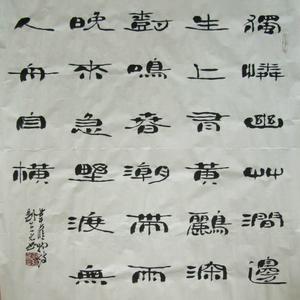 獨憐幽艸澗邊
生上有黃鸝深
樹鳴春潮帶雨
晚來急野渡無
人舟自橫